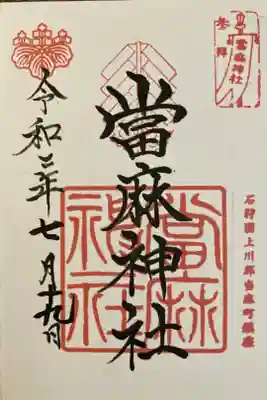 参拝
當麻神社
石狩國上川郡當麻町鎮座
當麻神社
當麻神社
令和三年七月十九日